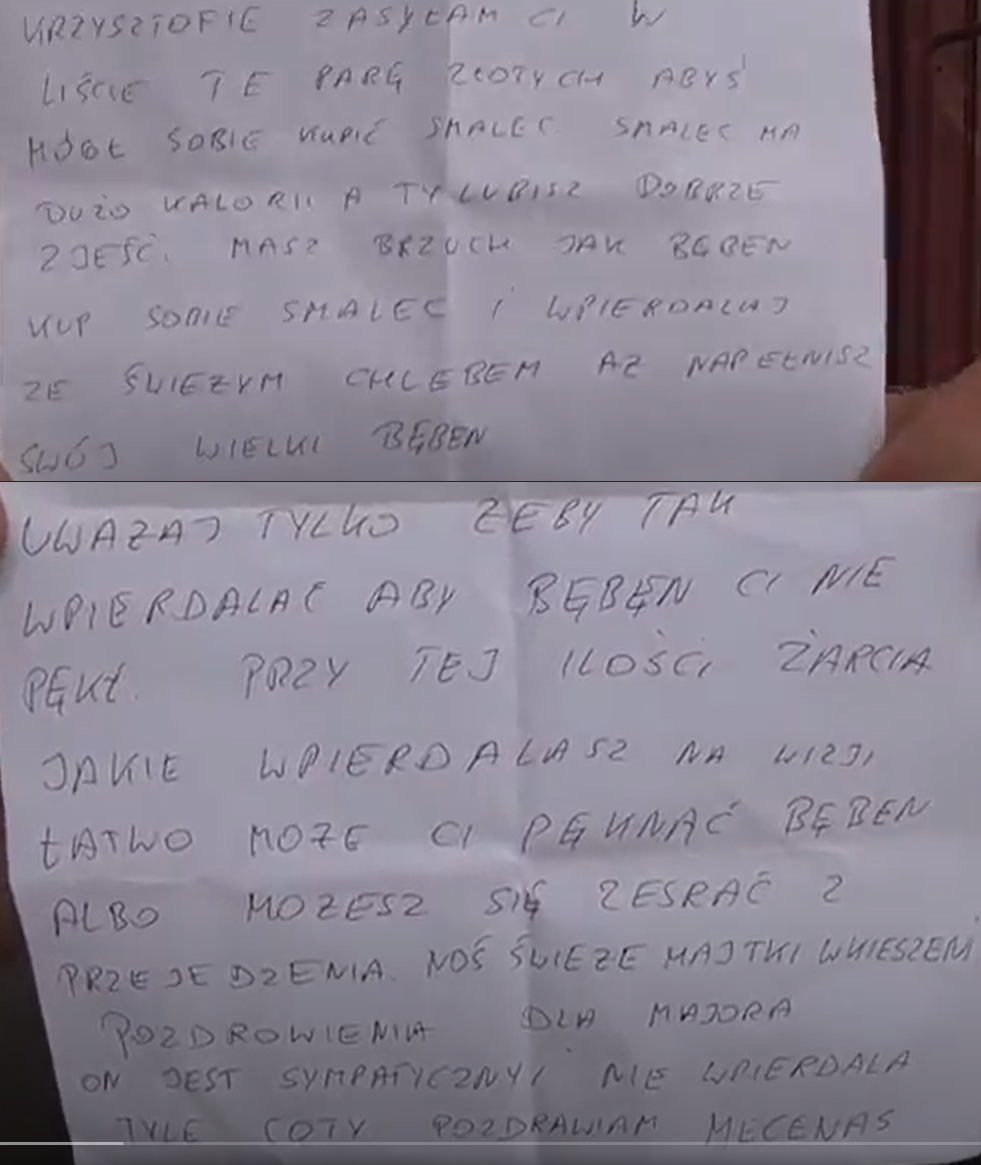 KRZYSZTOFIE ZASYŁAM CI W
LIŚCIE TE PARĘ ZŁOTYCH ABYŚ
MÓGŁ SOBIE KUPIĆ SMALEC. SMALEC MA
DUŻO KALORII A TY LUBISZ DOBRZE
ZJEŚĆ. MASZ BRZUCH JAK BĘBEN
KUP SOBIE SMALEC I WPIERDALAJ
ZE ŚWIEZYM CHLEBEM AZ NAPEŁNISZ
SWÓJ WIELKI BĘBEN
UWAZAJ TYLKO ZEBY TAK
WPIERDALAĆ ABY BĘBĘN CI NIE
PĘKŁ. PRZY TEJ ILOŚCI ŻARCIA
JAKIE WPIERDALASZ NA WIZJI
ŁATWO MOZE CI PĘKNAĆ BĘBEN
ALBO MOZESZ SIĘ ZESRAĆ Z
PRZEJEDZENIA. NOŚ ŚWIEZE MAJTKI W KIESZENI
POZDROWIENIA DLA MAJORA
ON JEST SYMPATYCZNY I NIE WPIERDALA
TYLE CO TY POZDRAWIAM MECENAS